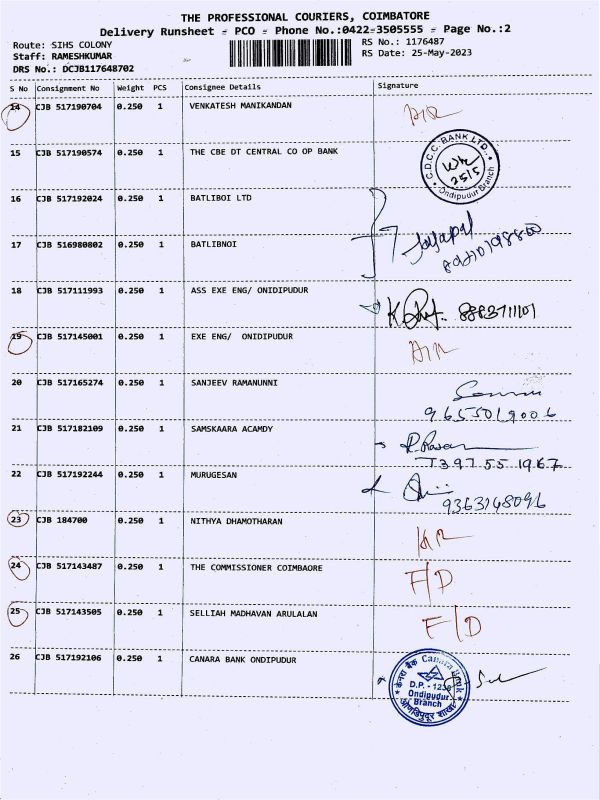 THE PROFESSIONAL COURIERS, COIMBATORE
Delivery Runsheet - PCO - Phone No.:0422-3505555 - Page No.:2
Route: SIHS COLONY
RS No.: 1176487
Staff: RAMESHKUMAR
RS Date: 25-May-2023
DRS No.: DCJB117648702
S No Consignment No Weight PCS Consignee Details Signature
14 CJB 517190704 0.250 1 VENKATESH MANIKANDAN
15 CJB 517190574 0.250 1 THE CBE DT CENTRAL CO OP BANK
C.D.C.C. BANK LTD.,
25/5
Ondipudur Branch
16 CJB 517192024 0.250 1 BATLIBOI LTD
17 CJB 516980802 0.250 1 BATLIBNOI
Jayapal
18 CJB 517111993 0.250 1 ASS EXE ENG/ ONIDIPUDUR
8883711101
19 CJB 517145001 0.250 1 EXE ENG/ ONIDIPUDUR
20 CJB 517165274 0.250 1 SANJEEV RAMANUNNI
9655019006
21 CJB 517182109 0.250 1 SAMSKAARA ACAMDY
7397551967
22 CJB 517192244 0.250 1 MURUGESAN
9363148096
23 CJB 184700 0.250 1 NITHYA DHAMOTHARAN
24 CJB 517143487 0.250 1 THE COMMISSIONER COIMBAORE
F/D
25 CJB 517143505 0.250 1 SELLIAH MADHAVAN ARULALAN
F/D
26 CJB 517192106 0.250 1 CANARA BANK ONDIPUDUR
केनरा बैंक Canara Bank
D.P. - 1236
Ondipudur
Branch